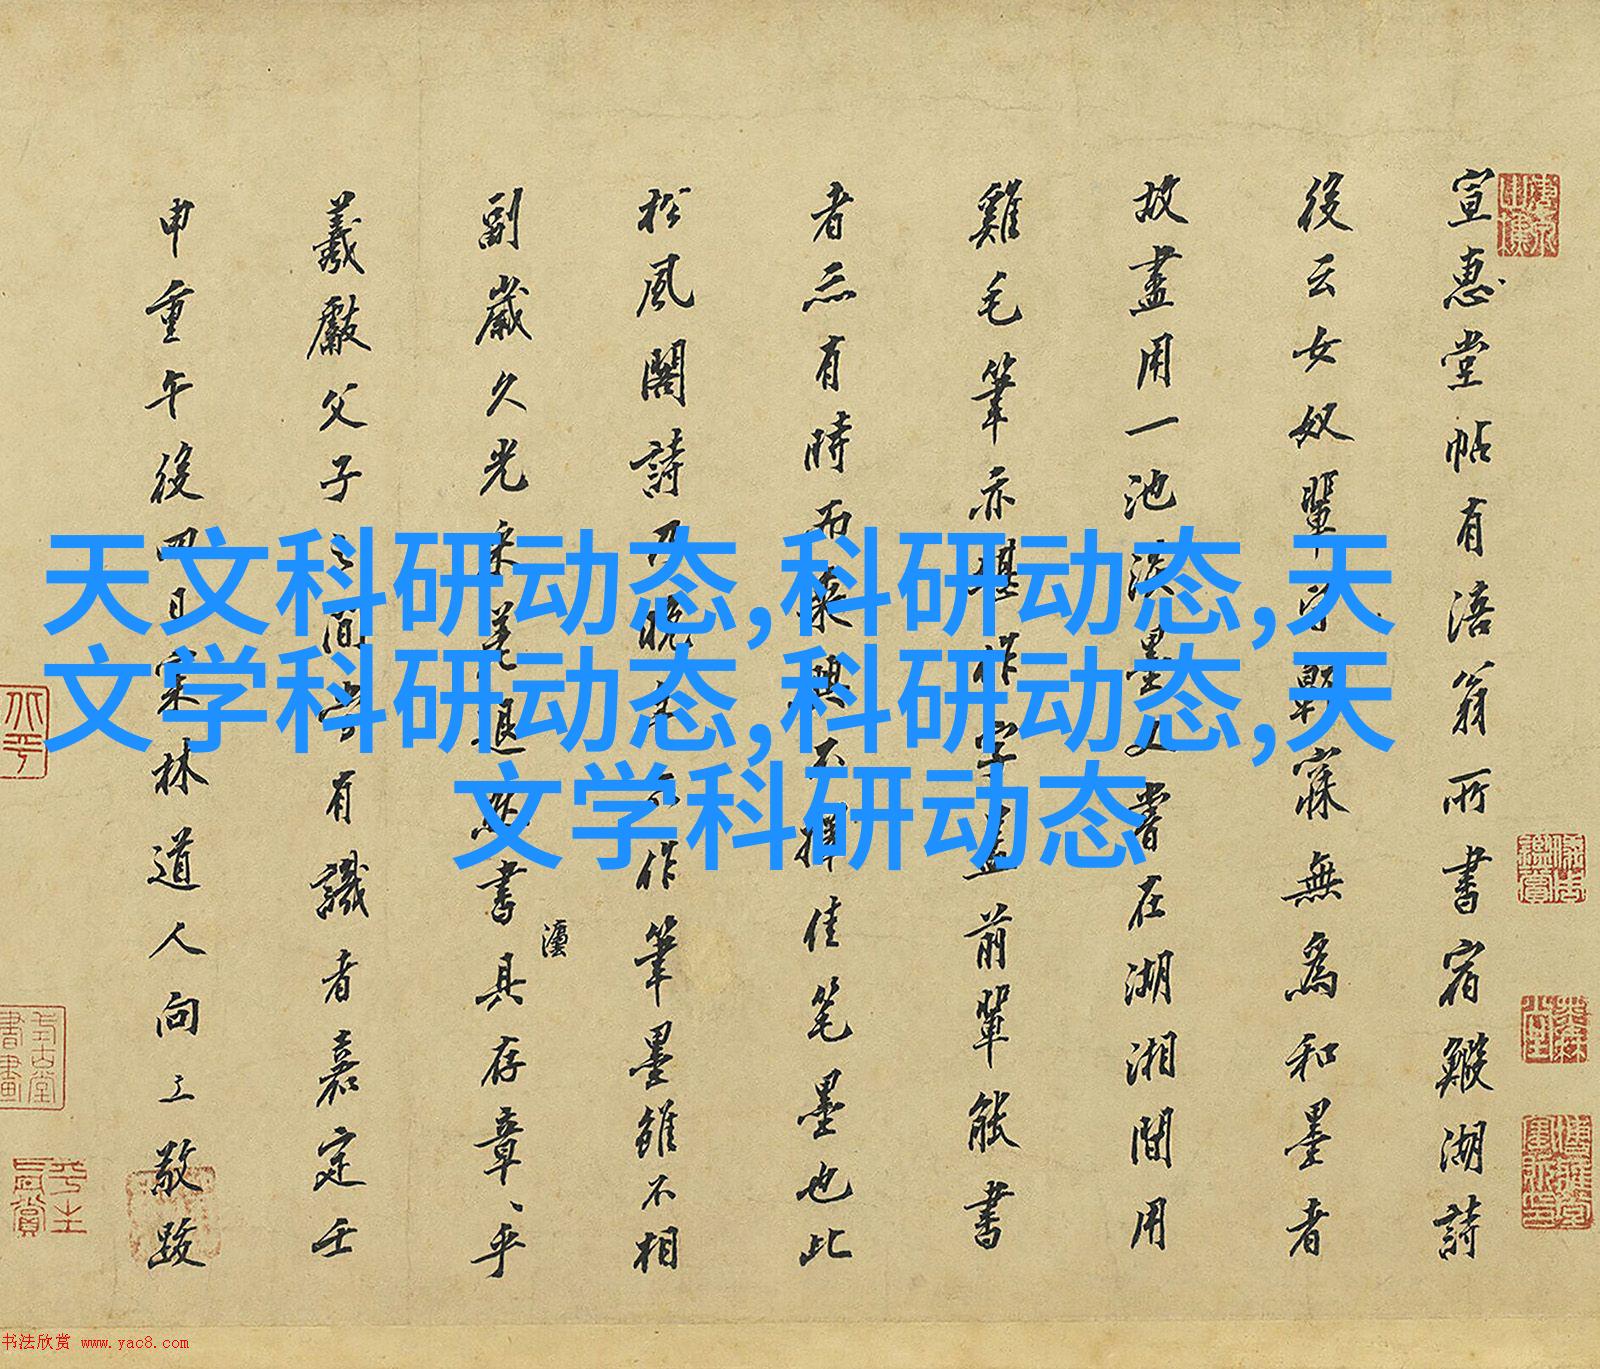 宣惠堂帖有涪翁所書宿鰕湖詩
後云女奴輩
寐無為和墨者
故盡用一池
墨
書在湖湘間用
雞毛筆亦堪作字蓋前輩能書
者亦有時而
佳笔墨也此
松風閣詩乃晚
作筆墨雖不相
副歲久光采
退然書具存章、乎
瀍
羲獻父子之間當有識者嘉定壬
申重午後四日寀林道人向士敬跋
天文科研动态,科研动态,天
文学科研动态,科研动态,天
文学科研动态
书法欣赏 www.yac8.com